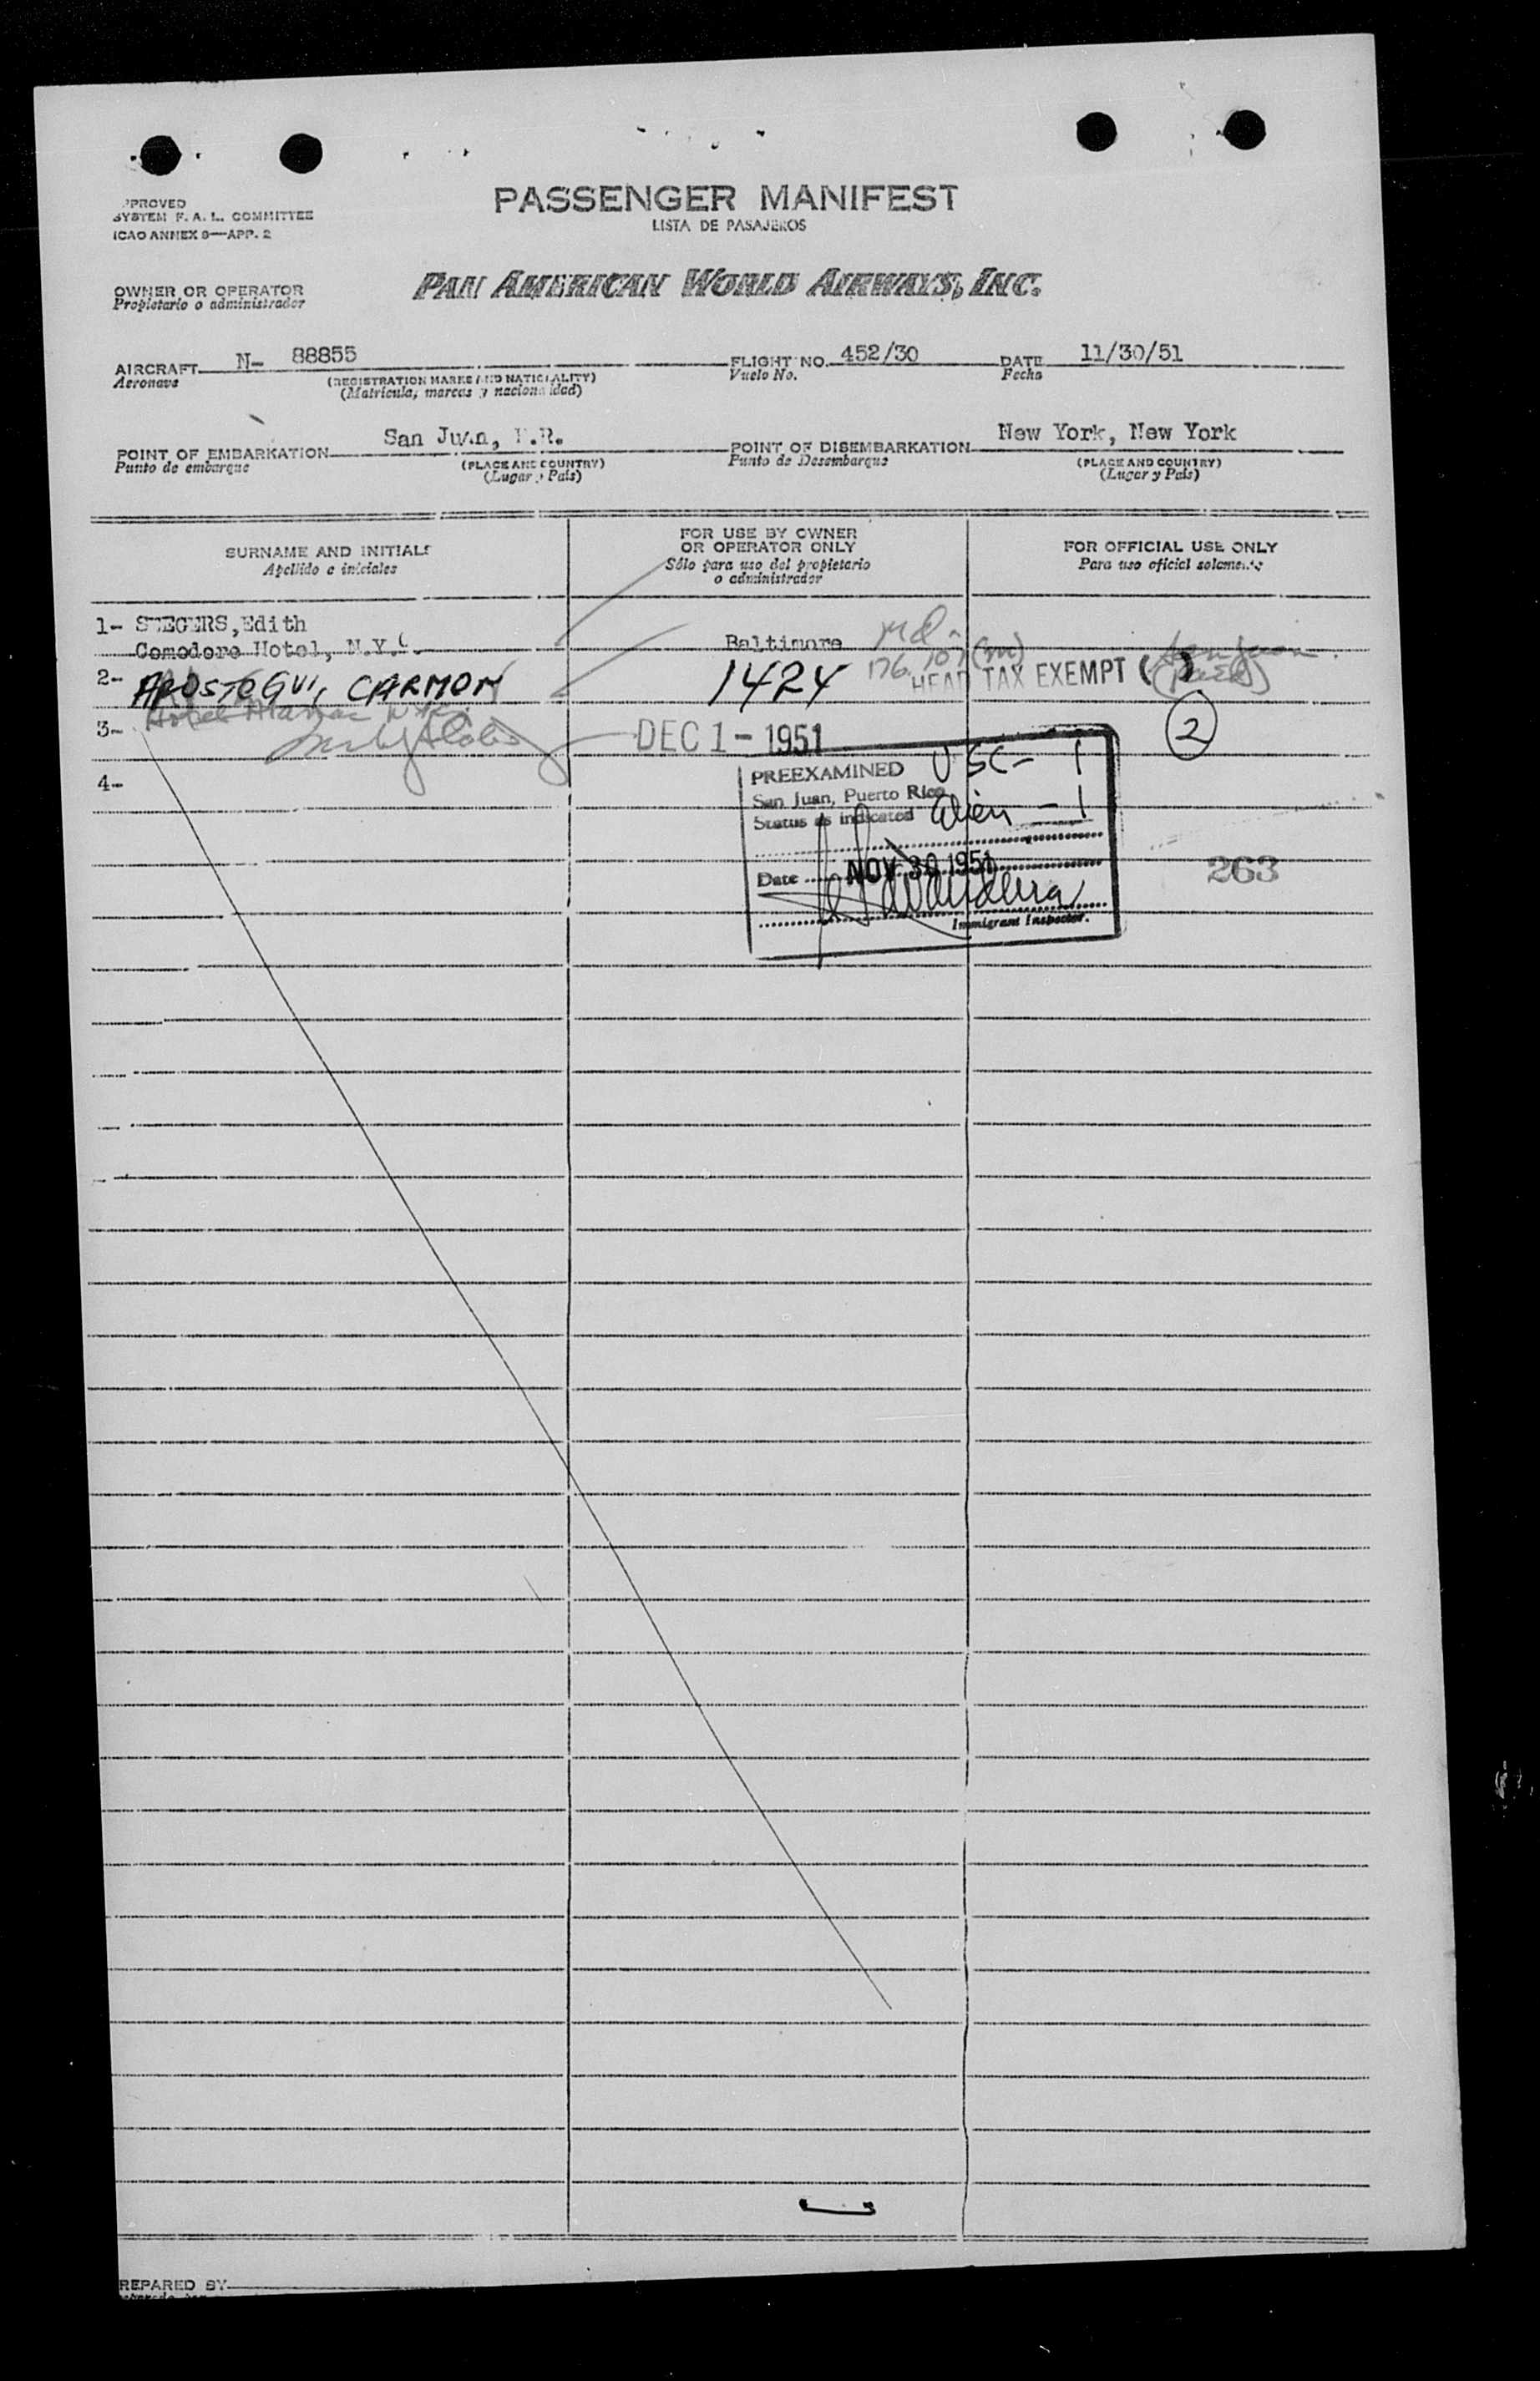 PPROVED
SYSTEM F. A. L. COMMITTEE
ICAO ANNEX 9—APP. 2
PASSENGER MANIFEST
LISTA DE PASAJEROS
OWNER OR OPERATOR
Propietario o administrador
PAN AMERICAN WORLD AIRWAYS, INC.
AIRCRAFT N- 88855 FLIGHT NO. 452/30 DATE 11/30/51
Aeronave (REGISTRATION MARKS AND NATIONALITY) Vuelo No. Fecha
(Matricula, marcas y nacionalidad)
POINT OF EMBARKATION San Juan, P.R. POINT OF DISEMBARKATION New York, New York
Punto de embarque (PLACE AND COUNTRY) Punto de Desembarque (PLACE AND COUNTRY)
(Lugar y Pais) (Lugar y Pais)
SURNAME AND INITIALS
Apellido e iniciales
FOR USE BY OWNER
OR OPERATOR ONLY
Sólo para uso del propietario
o administrador
FOR OFFICIAL USE ONLY
Para uso oficial solamente
1- STEGERS,Edith
Comodore Hotel, N.Y.C. Baltimore Md. San Juan
2- AROSTOGUI, CARMON 1424 176.107(m) HEAD TAX EXEMPT ( )
Hotel
3- DEC 1 - 1951 2
4-
PREEXAMINED USC - 1
San Juan, Puerto Rico
Status as indicated Alien - 1
Date NOV 30 1951
Immigrant Inspector.
263
REPARED BY